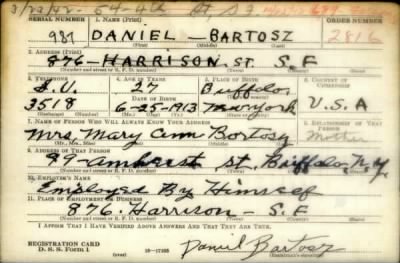 SERIAL NUMBER 1. NAME (Print) ORDER NUMBER
987 DANIEL — BARTOSZ 2816
(First) (Middle) (Last)
2. ADDRESS (Print)
876 - HARRISON ST. S.F
(Number and street or R. F. D. number) (Town) (County) (State)
3. TELEPHONE 4. AGE IN YEARS 5. PLACE OF BIRTH 6. COUNTRY OF CITIZENSHIP
27 Buffalo
3518 DATE OF BIRTH 6-25-1913 New York U.S.A
(Exchange) (Number) (Mo.) (Day) (Yr.) (State or country)
7. NAME OF PERSON WHO WILL ALWAYS KNOW YOUR ADDRESS 8. RELATIONSHIP OF THAT PERSON
Mrs. Mary Ann Bartosz Mother
(Mr., Mrs., Miss) (First) (Middle) (Last)
9. ADDRESS OF THAT PERSON
99 - Amherst St. Buffalo, N.Y.
(Number and street or R. F. D. number) (Town) (County) (State)
10. EMPLOYER'S NAME
Employed By Himself
11. PLACE OF EMPLOYMENT OR BUSINESS
876. Harrison - S.F
(Number and street or R. F. D. number) (Town) (County) (State)
I AFFIRM THAT I HAVE VERIFIED ABOVE ANSWERS AND THAT THEY ARE TRUE.
REGISTRATION CARD
D. S. S. Form 1 Daniel Bartosz
(Registrant's signature)